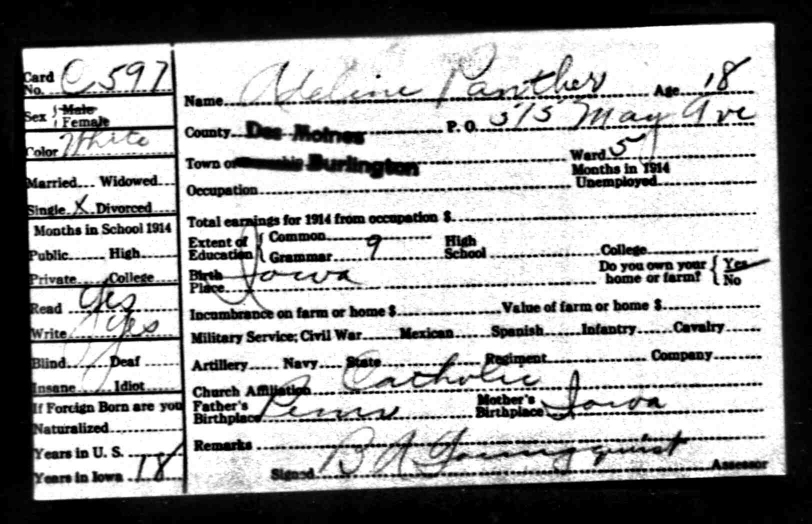 Card No. C597
Sex { Male Female
Color White
Married.... Widowed....
Single X Divorced....
Months in School 1914
Public.... High....
Private.... College....
Read Yes
Write yes
Blind.... Deaf....
Insane.... Idiot....
If Foreign Born are you
Naturalized....
Years in U. S. ....
Years in Iowa 18
Name Adeline Panther Age 18
County Des Moines P. O. 515 May Ave
Town or Burlington Ward 5
Occupation.... Months in 1914 Unemployed....
Total earnings for 1914 from occupation $....
Extent of Education { Common.... Grammar 9 High School.... College....
Birth Place Iowa Do you own your home or farm? { Yes No
Incumbrance on farm or home $.... Value of farm or home $....
Military Service; Civil War.... Mexican.... Spanish.... Infantry.... Cavalry....
Artillery.... Navy.... State.... Regiment.... Company....
Church Affiliation Catholic
Father's Birthplace Penn Mother's Birthplace Iowa
Remarks....
Signed B A Youngquist Assessor